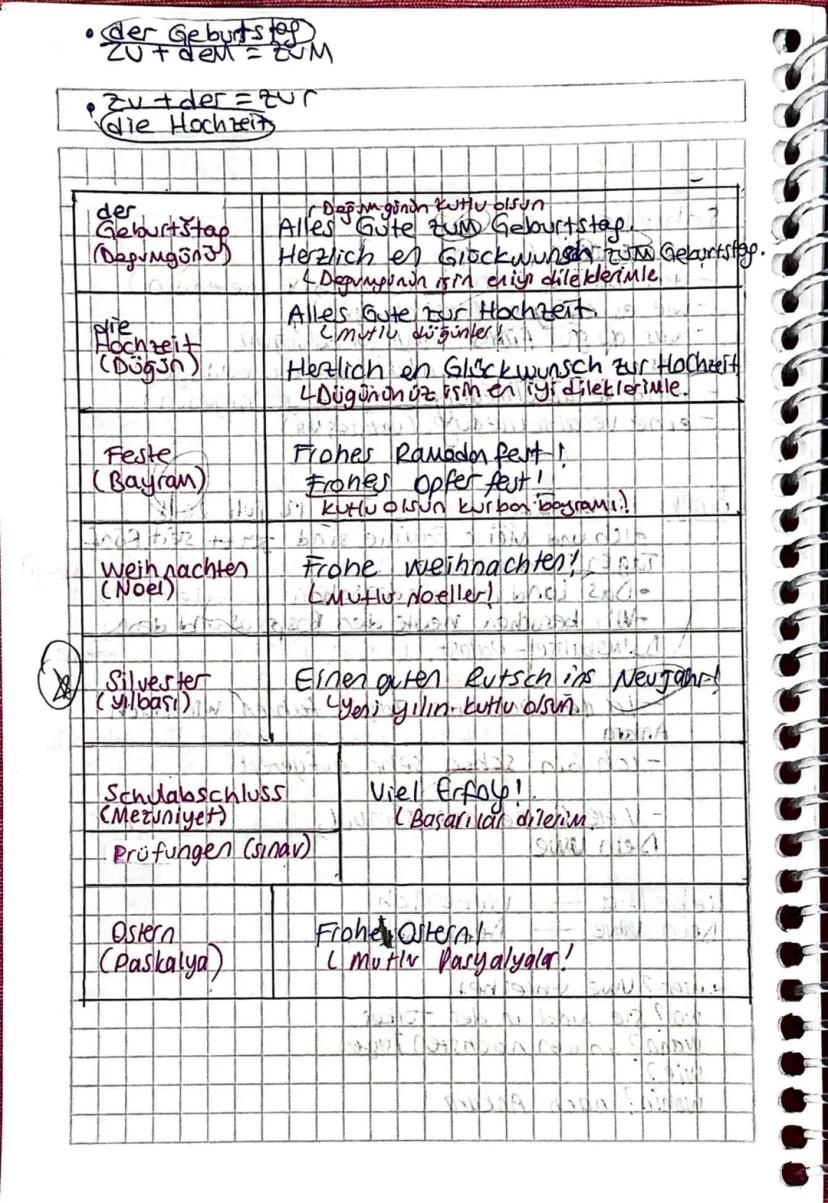 • der Geburtstag
zu + dem = zum
• zu + der = zur
die Hochzeit
der
Geburtstag
(Dogumgünü)
Doğumgünün kutlu olsun
Alles Gute zum Geburtstag.
Herzlich en Glückwunsch zum Geburtstag.
Dogumgünün için en iyi dileklerimle
die
Hochzeit
(Dügün)
Alles Gute zur Hochzeit.
Mutlu düğünler!
Herzlich en Glückwunsch zur Hochzeit
Dügününüz için en iyi dileklerimle.
Feste
(Bayram)
Frohes Ramadan fest!
Frohes Opfer fest!
kutlu olsun kurban bayramı!
Weihnachten
(Noel)
Frohe Weihnachten!
Mutlu Noeller!
Silvester
(yılbası)
Einen guten Rutsch ins Neujahr!
Yeni yılın kutlu olsun.
Schulabschluss
(Mezuniyet)
Prüfungen (sınav)
Viel Erfolg!
Başarılar dilerim.
Ostern
(Paskalya)
Frohe Ostern!
Mutlu Pasyalyalar!